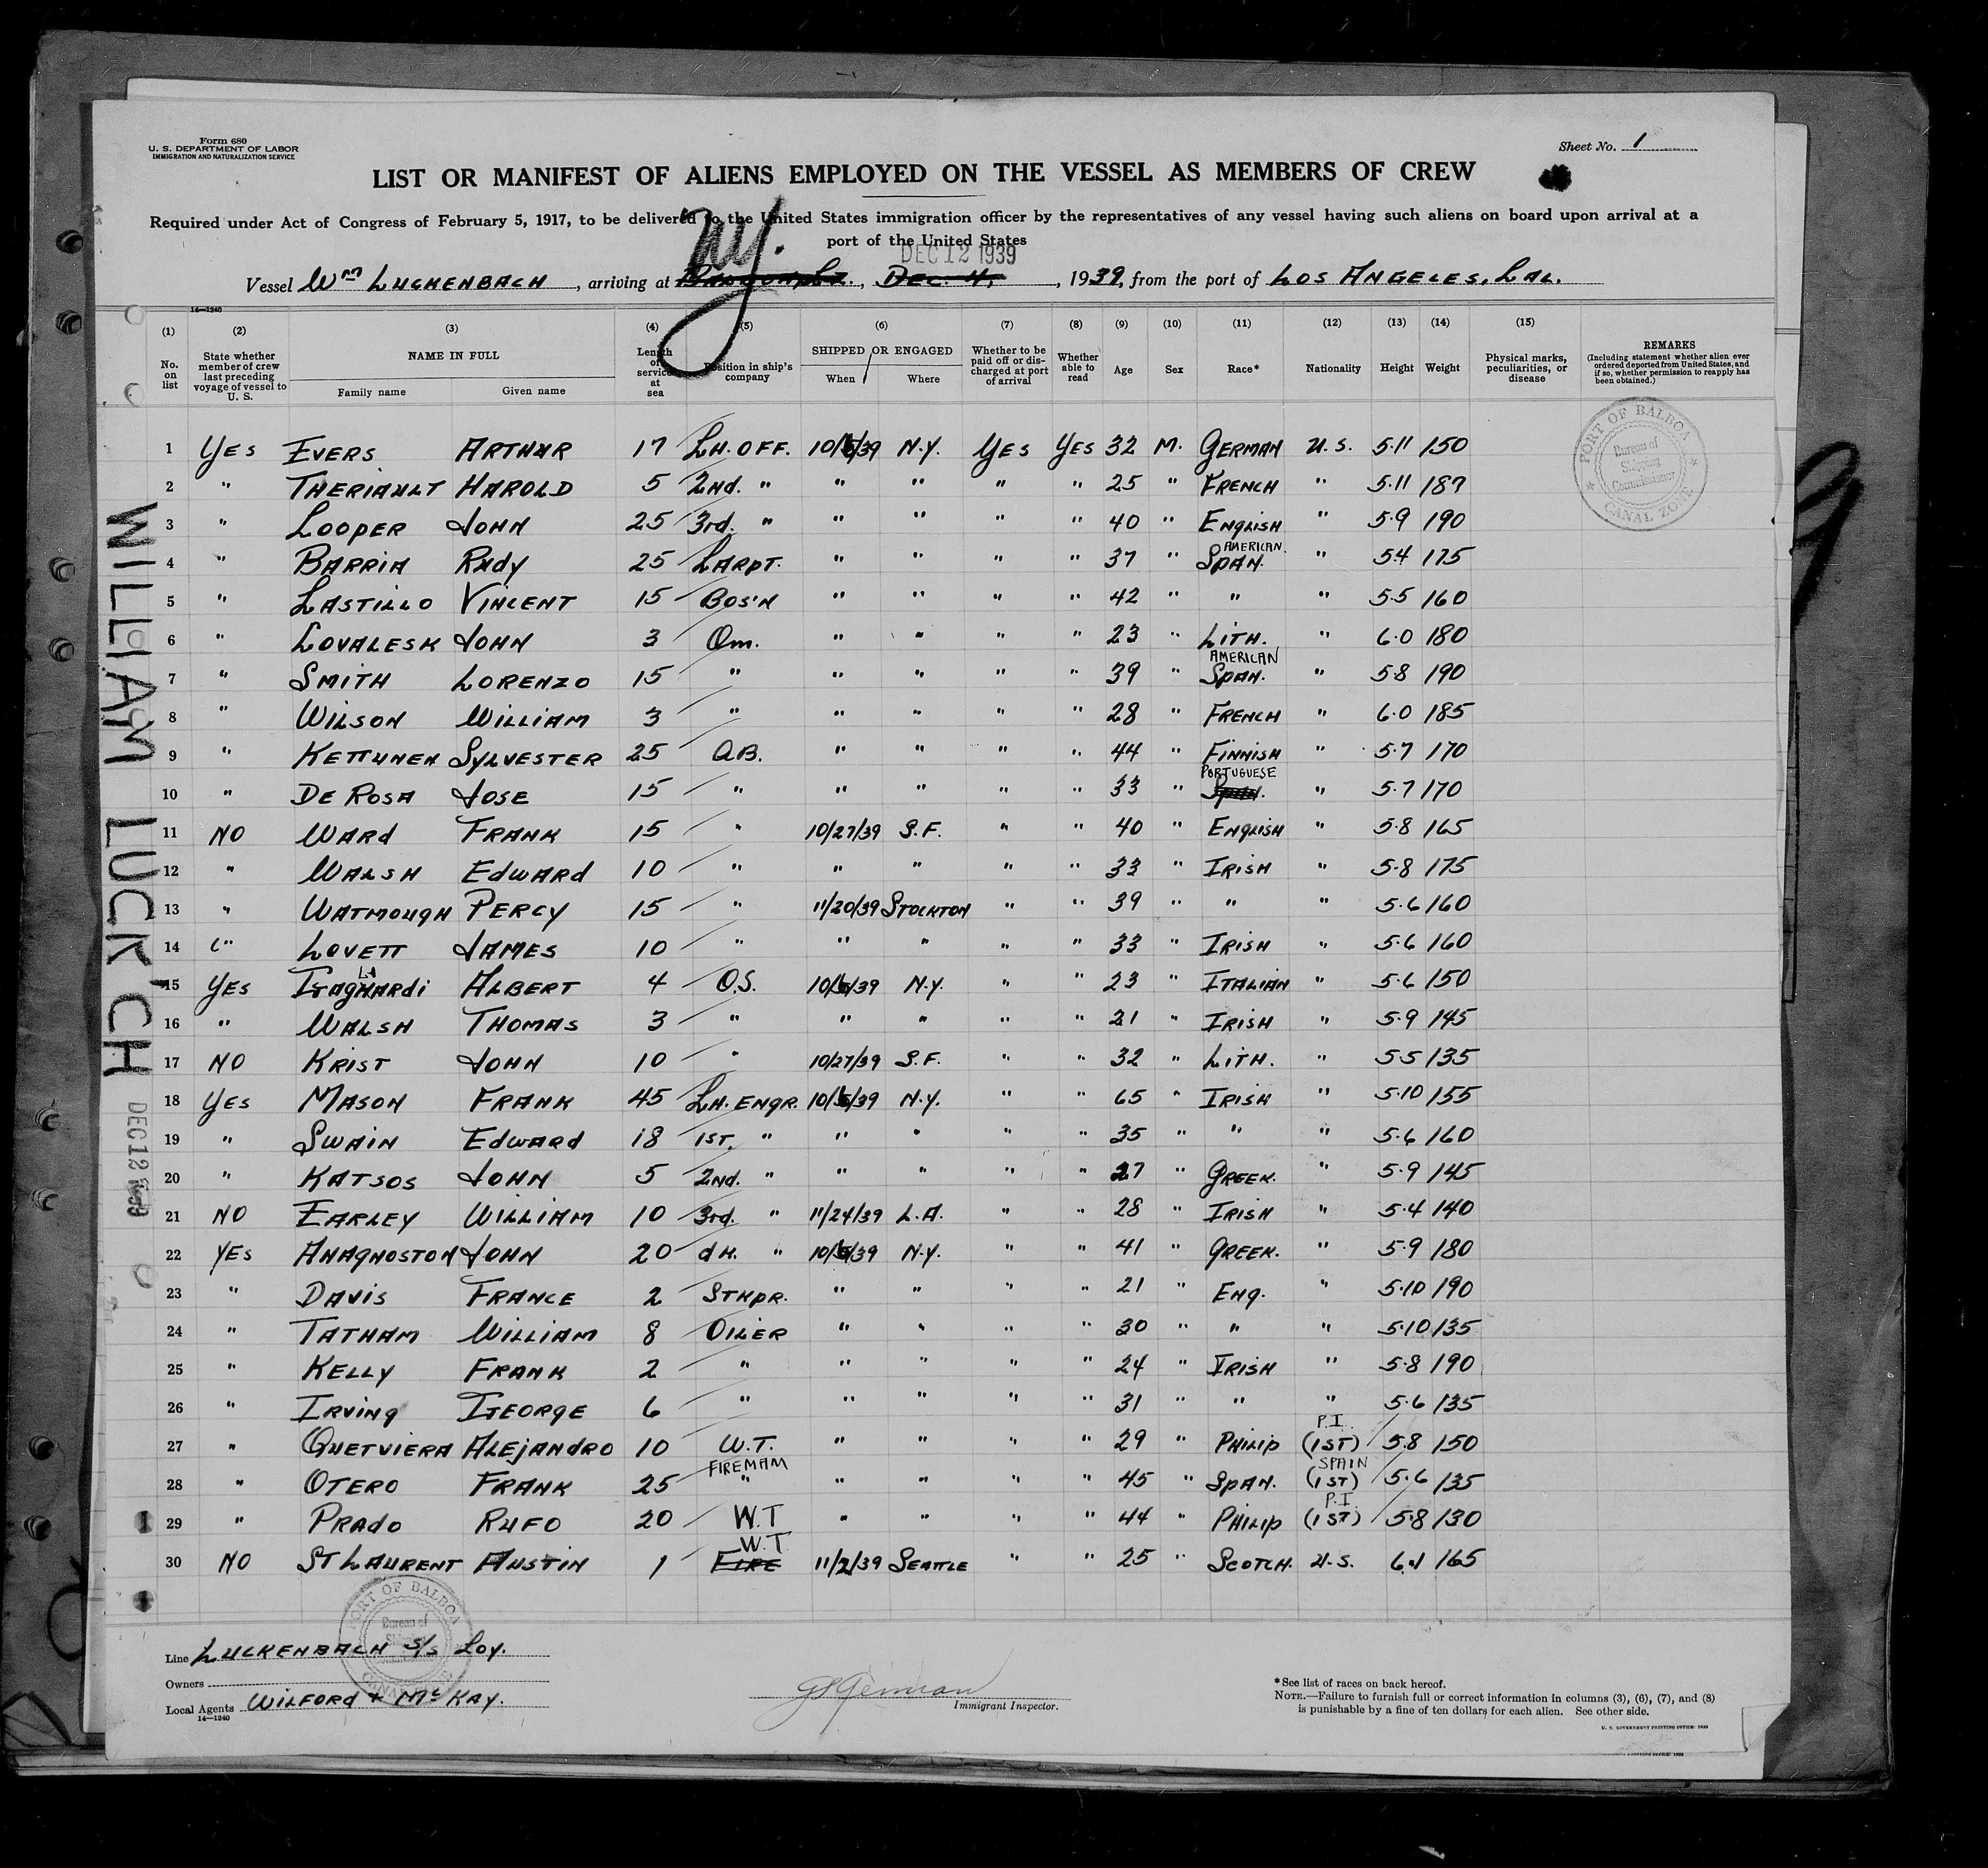 Form 680
U. S. DEPARTMENT OF LABOR
IMMIGRATION AND NATURALIZATION SERVICE
Sheet No. 1
LIST OR MANIFEST OF ALIENS EMPLOYED ON THE VESSEL AS MEMBERS OF CREW
Required under Act of Congress of February 5, 1917, to be delivered to the United States immigration officer by the representatives of any vessel having such aliens on board upon arrival at a
port of the United States
N.Y.
DEC 12 1939
Vessel Wm LUCKENBACH, arriving at , Dec. 4, 1939, from the port of LOS ANGELES, CAL.
14—1240
(1) (2) (3) (4) (5) (6) (7) (8) (9) (10) (11) (12) (13) (14) (15)
No. on list State whether member of crew last preceding voyage of vessel to U. S. NAME IN FULL Family name Given name Length of service at sea Position in ship's company SHIPPED OR ENGAGED When Where Whether to be paid off or discharged at port of arrival Whether able to read Age Sex Race* Nationality Height Weight Physical marks, peculiarities, or disease REMARKS (Including statement whether alien ever ordered deported from United States, and if so, whether permission to reapply has been obtained.)
PORT OF BALBOA Bureau of Shipping Commissioner CANAL ZONE
1 YES EVERS ARTHUR 17 CH. OFF. 10/5/39 N.Y. YES YES 32 M. GERMAN U.S. 5·11 150
2 " THERIAULT HAROLD 5 2nd. " " " " " 25 " FRENCH " 5·11 187
3 " COOPER JOHN 25 3rd. " " " " " 40 " ENGLISH " 5·9 190
4 " BARRIA RUDY 25 CARPT. " " " " 37 " SPAN. AMERICAN " 5·4 175
5 " CASTILLO VINCENT 15 BOS'N " " " " 42 " " " 5·5 160
6 " COVALESK JOHN 3 Qm. " " " " 23 " LITH. " 6·0 180
7 " SMITH LORENZO 15 " " " " " 39 " SPAN. AMERICAN " 5·8 190
8 " WILSON WILLIAM 3 " " " " " 28 " FRENCH " 6·0 185
9 " KETTUNEN SYLVESTER 25 A.B. " " " " 44 " FINNISH " 5·7 170
10 " DE ROSA JOSE 15 " " " " " 33 " PORTUGUESE " 5·7 170
11 NO WARD FRANK 15 " 10/27/39 S.F. " " 40 " ENGLISH " 5·8 165
12 " WALSH EDWARD 10 " " " " " 33 " IRISH " 5·8 175
13 " WATMOUGH PERCY 15 " 11/20/39 STOCKTON " " 39 " " " 5·6 160
14 " LOVETT JAMES 10 " " " " " 33 " IRISH " 5·6 160
15 YES ALBERT 4 O.S. 10/5/39 N.Y. " " 23 " ITALIAN " 5·6 150
16 " WALSH THOMAS 3 " " " " " 21 " IRISH " 5·9 145
17 NO KRIST JOHN 10 " 10/27/39 S.F. " " 32 " LITH. " 5·5 135
18 YES MASON FRANK 45 CH. ENGR. 10/5/39 N.Y. " " 65 " IRISH " 5·10 155
19 " SWAIN EDWARD 18 1ST. " " " " " 35 " " " 5·6 160
20 " KATSOS JOHN 5 2nd. " " " " " 27 " GREEK. " 5·9 145
21 NO EARLEY WILLIAM 10 3rd. " 11/24/39 L.A. " " 28 " IRISH " 5·4 140
22 YES ANAGNOSTOU JOHN 20 dK. " 10/5/39 N.Y. " " 41 " GREEK. " 5·9 180
23 " DAVIS FRANCE 2 STKPR. " " " " 21 " ENG. " 5·10 190
24 " TATHAM WILLIAM 8 OILER " " " " 30 " " " 5·10 135
25 " KELLY FRANK 2 " " " " " 24 " IRISH " 5·8 190
26 " IRVING GEORGE 6 " " " " " 31 " " " 5·6 135
27 " QUETVIERA ALEJANDRO 10 W.T. " " " " 29 " PHILIP P.I. (1ST) 5·8 150
28 " OTERO FRANK 25 FIREMAM " " " " " 45 " SPAN. SPAIN (1ST) 5·6 135
29 " PRADO RUFO 20 W.T " " " " 44 " PHILIP P.I. (1ST) 5·8 130
30 NO ST LAURENT AUSTIN 1 W.T. FIRE 11/2/39 SEATTLE " " 25 " SCOTCH. U.S. 6·1 165
WILLIAM LUCK'CH DEC 12 1939
PORT OF BALBOA Bureau of CANAL ZONE
Line LUCKENBACH S/S COY.
Owners
Local Agents WILFORD + McKAY.
14—1240
Immigrant Inspector.
*See list of races on back hereof.
NOTE.—Failure to furnish full or correct information in columns (3), (6), (7), and (8)
is punishable by a fine of ten dollars for each alien. See other side.
U. S. GOVERNMENT PRINTING OFFICE: 1938